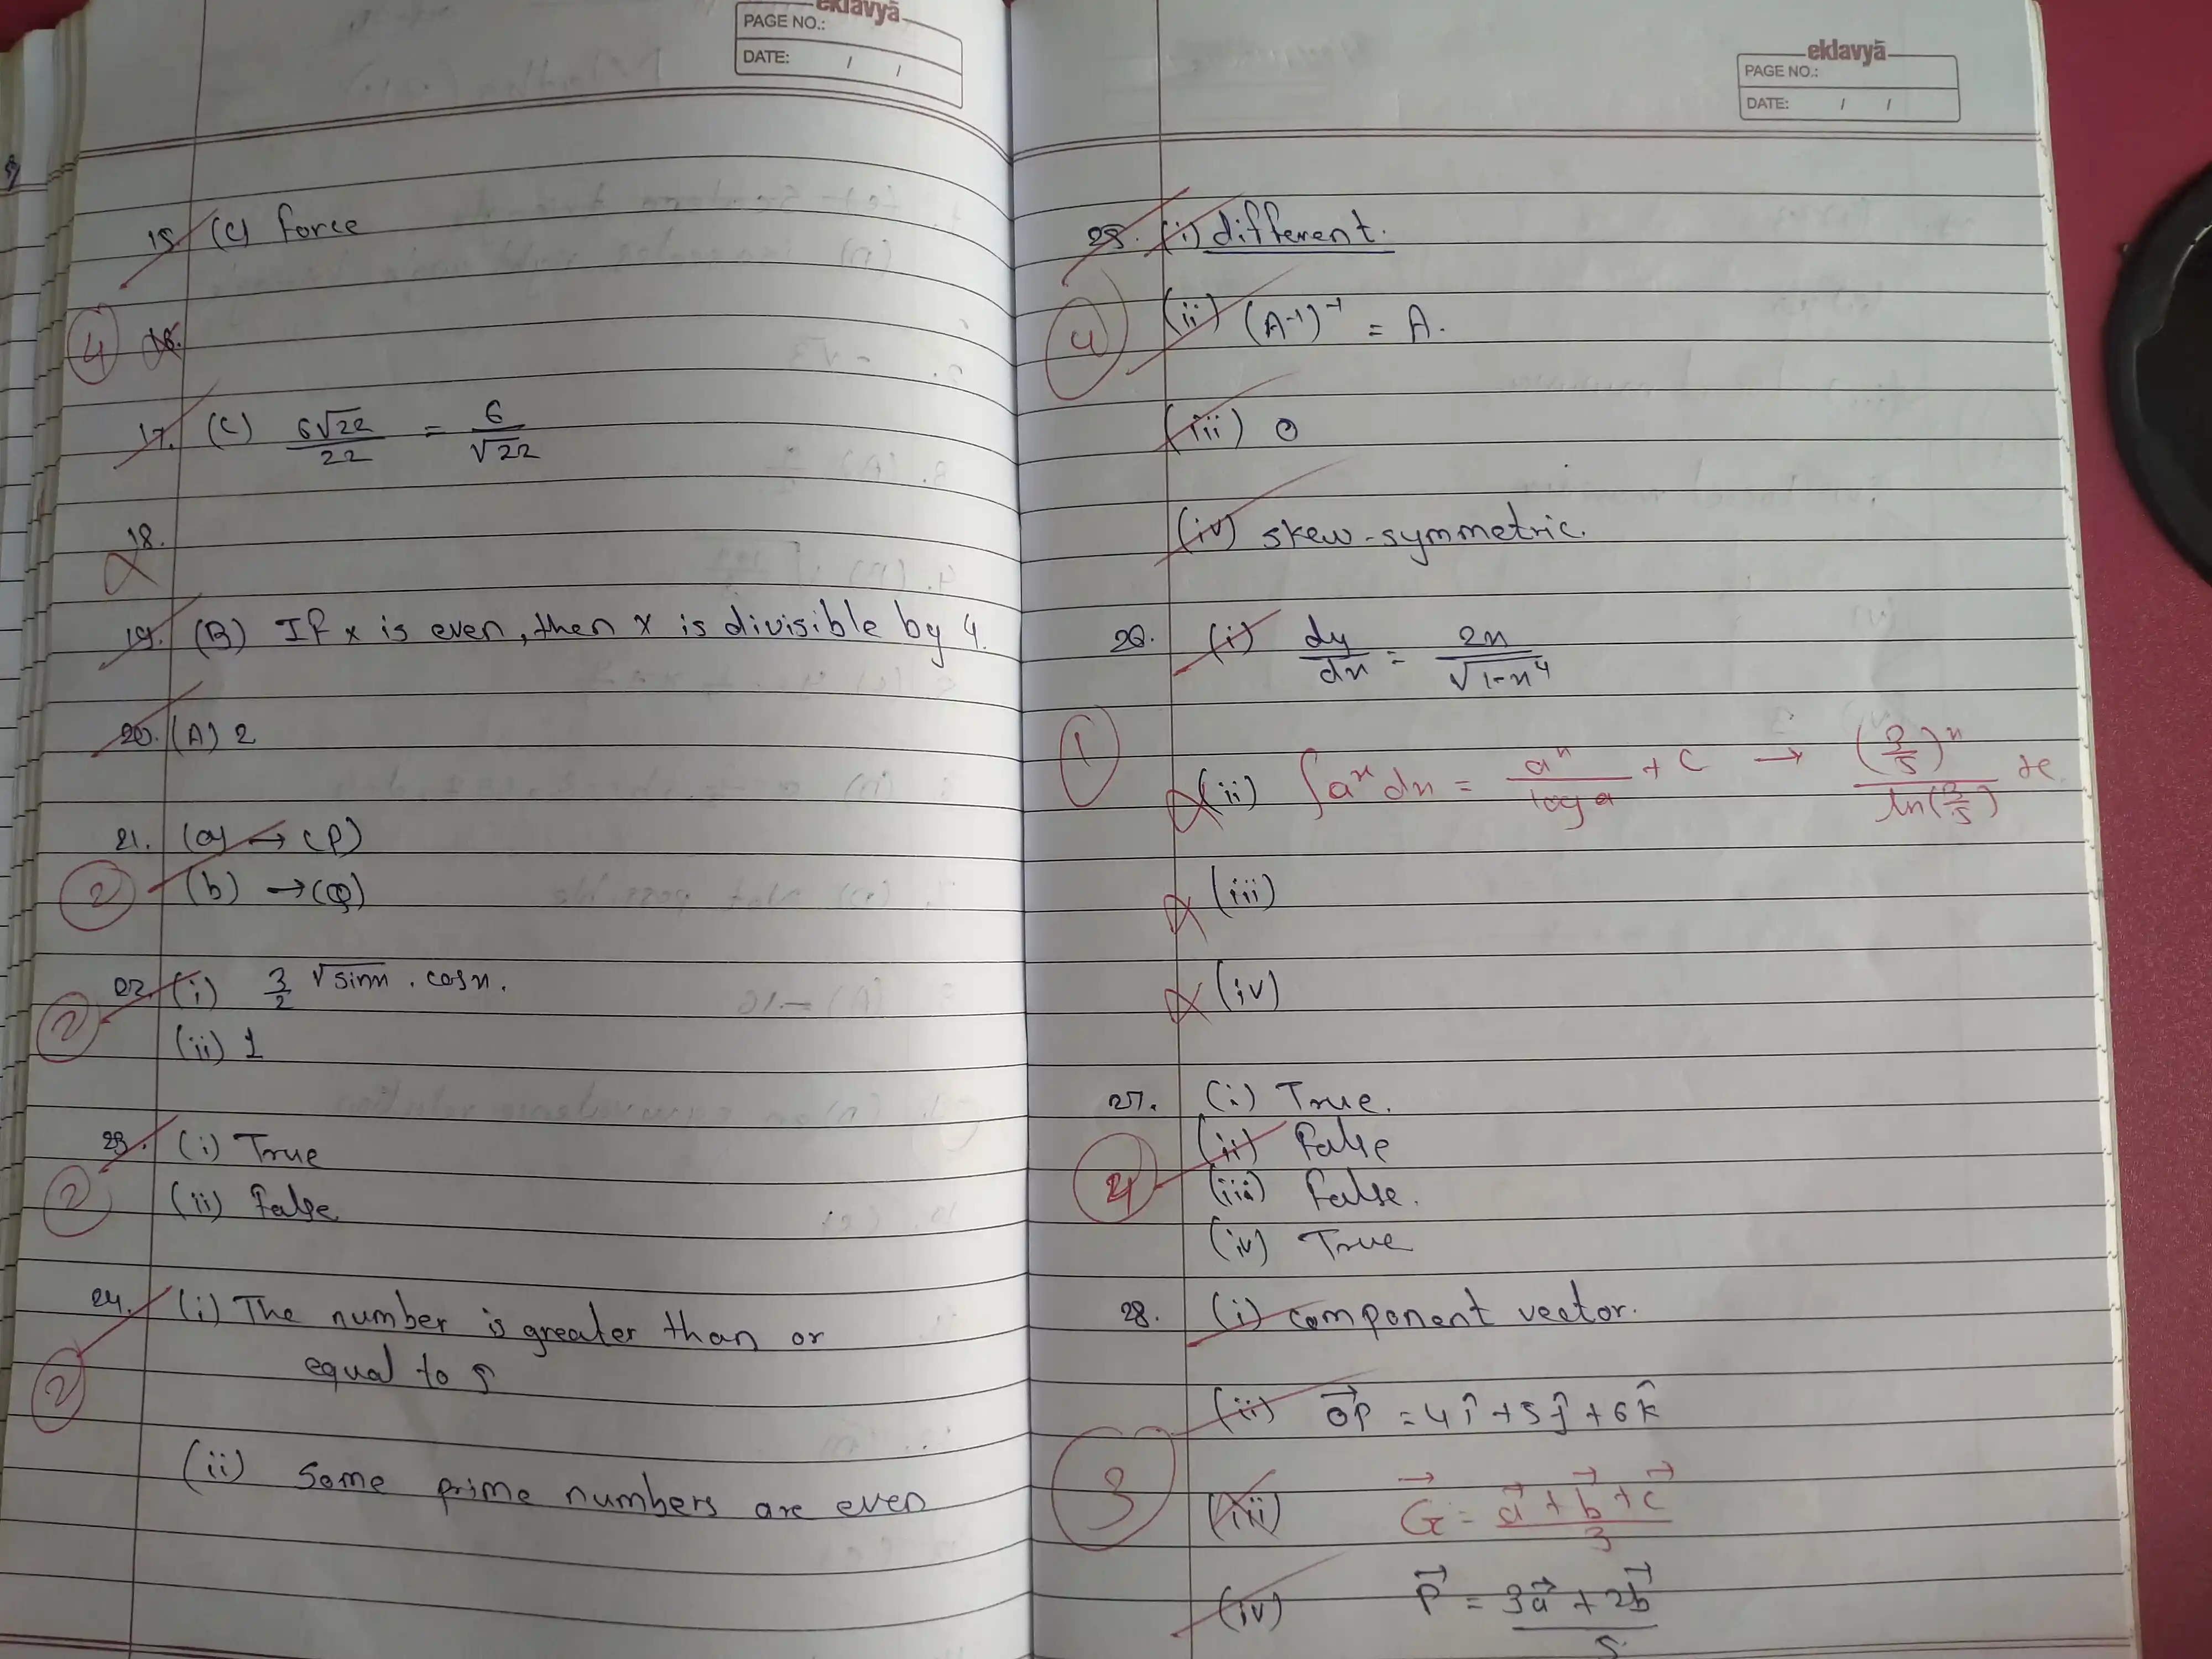 eklavyā
PAGE NO.:
DATE: / /
15. (C) force
4 16.
17. (C) 6√22/22 = 6/√22
18.
19. (B) If x is even, then x is divisible by 4.
20. (A) 2
21. (a) → (P)
2 (b) → (Q)
22. (i) 3/2 √sinx . cosx.
2
(ii) 1
23. (i) True
2 (ii) False
24. (i) The number is greater than or
equal to 5
2
(ii) Some prime numbers are even
eklavyā
PAGE NO.:
DATE: / /
25. (i) different.
4 (ii) (A⁻¹)⁻¹ = A.
(iii) 0
(iv) skew-symmetric.
26. (i) dy/dx = 2x/√1-x⁴
1
(ii) ∫aˣ dx = aˣ/log a + C → (3/5)ˣ/ln(3/5) +c.
(iii)
(iv)
27. (i) True.
(ii) False
4 (iii) False.
(iv) True
28. (i) component vector.
(ii) →OP = 4î + 5ĵ + 6k̂
3 (iii) →G = →a + →b + →c/3
(iv) →P = 3→a + 2→b/5